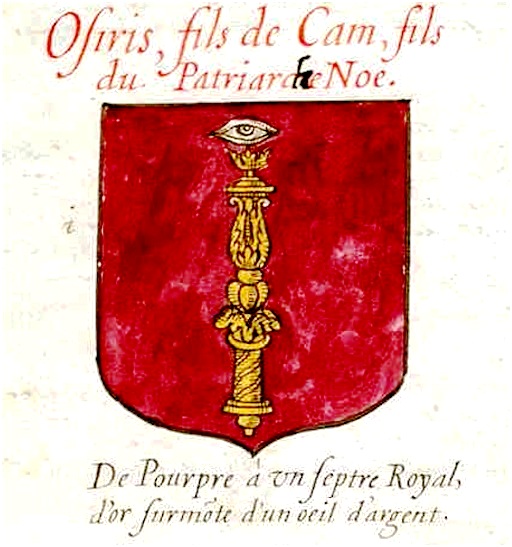 Osiris, fils de Cam, fils
du Patriarche Noe.
i
De Pourpre à vn septre Royal,
d'or surmõte d'un oeil d'argent.